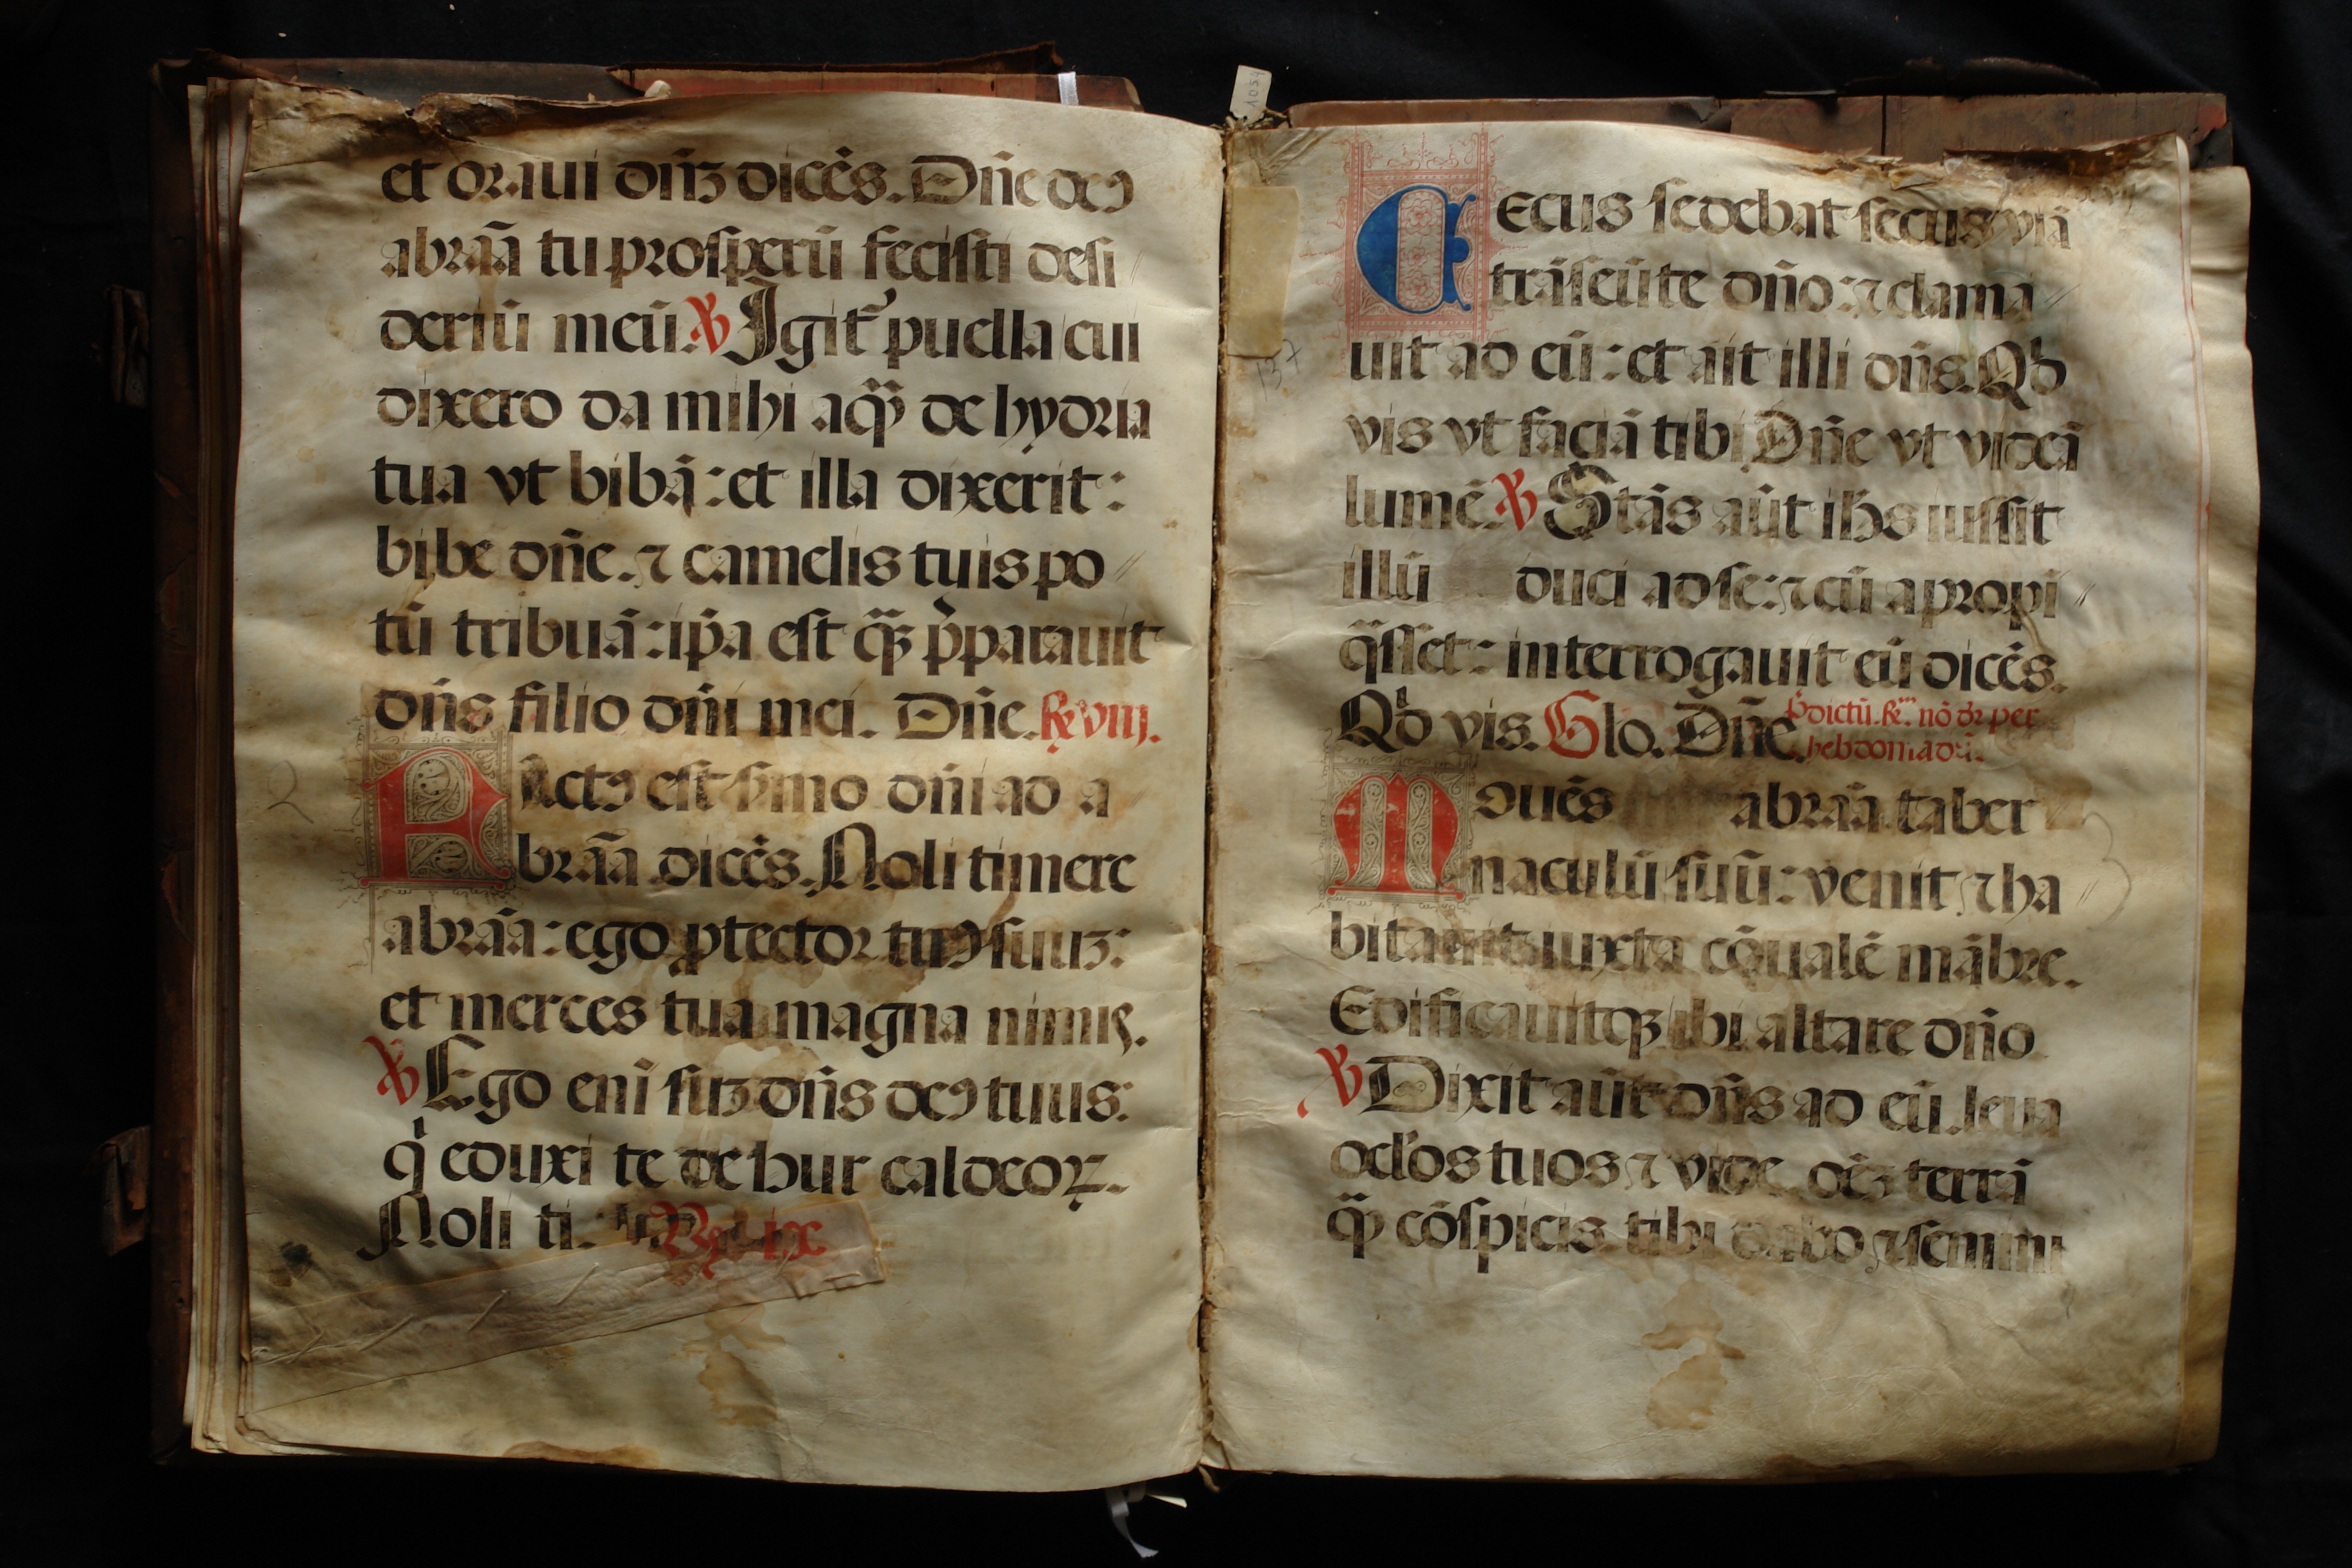 et oraui dn̄ʒ dicēs. Dn̄e deꝯ
abraā tu prosperū fecisti desi
deriū meū. ℣ Igit᷑ puella cui
dixero da mihi aqȝ̄ de hydria
tua vt bibā: et illa dixerit:
bibe dn̄e. ⁊ camelis tuis po
tū tribuā: ip̄a est qȝ̄ p̄parauit
dn̄s filio dn̄i mei. Dn̄e. ℟ viij.
FActꝯ est s̄mo dn̄i ad a
braā dicēs. Noli timere
abraā: ego ꝓtector tuꝯ suuʒ:
et merces tua magna nimis.
℣ Ego eni suʒ dn̄s deꝯ tuus:
qi eduxi te de hur caldeoꝝ.
Noli ti. ix
1059
CEcus sedebat secus viā
trāseūte dn̄o: ⁊ clama
uit ad eū: et ait illi dn̄s. Qd
137
vis vt faciā tibi Dn̄e vt videā
lumē. ℣ Stās aūt ihs iussit
illū duci ad se: ⁊ cū apropi
q̄sset: interrogauit eū dicēs.
Qd vis. Glo. Dn̄e. p̄dictū. ℟. nō dr per
hebdomadā.
Mouēs abraā taber
naculū suū: venit ⁊ ha
bitauit iuxta cōualē mābre.
Edificauitqȝ ibi altare dn̄o
℣ Dixit aūt dn̄s ad eū. leua
ocl'os tuos ⁊ vide oēʒ terrā
qȝ̄ cōspicis tibi dabo ⁊ semini